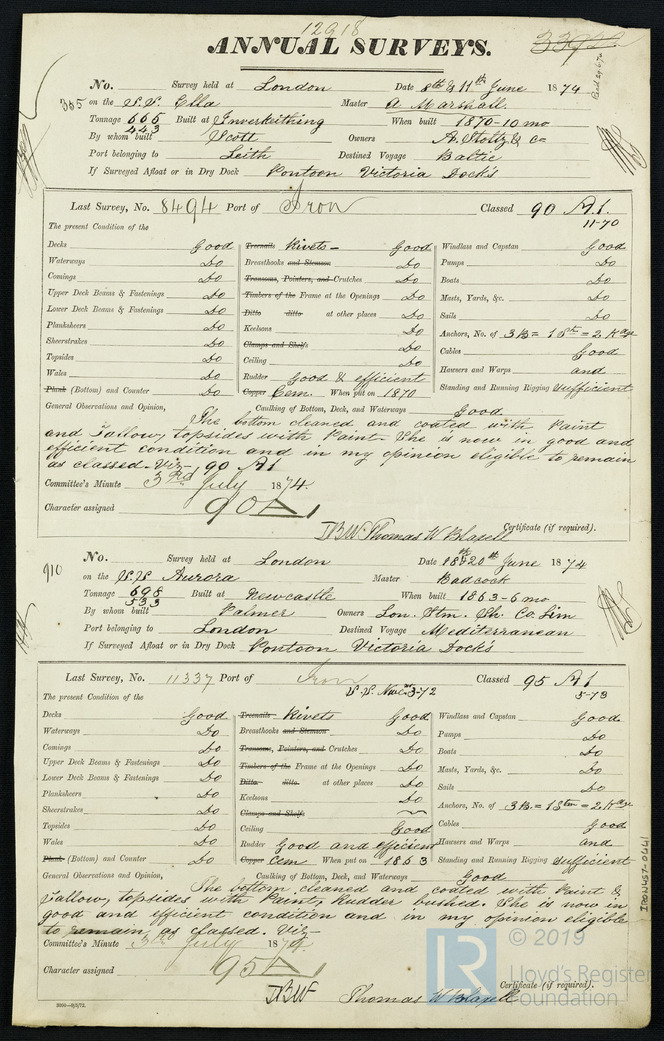 12918
ANNUAL SURVEYS.
No. Survey held at London Date 8th & 11th June 1874
on the S.S. Ella Master A. Marshall.
Tonnage 665 Built at Inverkeithing When built 1870-10 mo
443
By whom built Scott Owners A. Stoltz & Co
Port belonging to Leith Destined Voyage Baltic
If Surveyed Afloat or in Dry Dock Pontoon Victoria Docks
Last Survey, No. 8494 Port of Iron Classed 90 A1.
11-70
The present Condition of the
Decks Good Treenails Rivets- Good Windlass and Capstan Good
Waterways Do Breasthooks and Stemson Do Pumps Do
Comings Do Transoms, Pointers, and Crutches Do Boats Do
Upper Deck Beams & Fastenings Do Timbers of the Frame at the Openings Do Masts, Yards, &c. Do
Lower Deck Beams & Fastenings Do Ditto ditto at other places Do Sails Do
Planksheers Do Keelsons Do Anchors, No. of 3 B = 1 Stm = 2 Kdge
Sheerstrakes Do Clamps and Shelfs Do Cables Good
Topsides Do Ceiling Do Hawsers and Warps and
Wales Do Rudder Good & efficient Standing and Running Rigging sufficient
Plank (Bottom) and Counter Do Copper Cem. When put on 1870
General Observations and Opinion, Caulking of Bottom, Deck, and Waterways Good
The bottom cleaned and coated with Paint
and Tallow, topsides with Paint- She is now in good and
efficient condition and in my opinion eligible to remain
as classed- Viz- 90 A1
Committee's Minute 3rd July 1874.
Character assigned 90 A1
Thomas W Blaxell Certificate (if required).
910
No. Survey held at London Date 18th & 20th June 1874
on the S.S. Aurora Master Badcock
Tonnage 698 Built at Newcastle When built 1863-6 mo
533
By whom built Palmer Owners Lon. Stm. Sh. Co. Lim
Port belonging to London Destined Voyage Mediterranean
If Surveyed Afloat or in Dry Dock Pontoon Victoria Docks
Last Survey, No. 11337 Port of Iron Classed 95 A1
5-73
The present Condition of the
Decks Good Treenails Rivets Good Windlass and Capstan Good
Waterways Do Breasthooks and Stemson Do Pumps Do
Comings Do Transoms, Pointers, and Crutches Do Boats Do
Upper Deck Beams & Fastenings Do Timbers of the Frame at the Openings Do Masts, Yards, &c. Do
Lower Deck Beams & Fastenings Do Ditto ditto at other places Do Sails Do
Planksheers Do Keelsons Do Anchors, No. of 3 B. = 1 Stm = 2 Kdge
Sheerstrakes Do Clamps and Shelfs Cables Good
Topsides Do Ceiling Good Hawsers and Warps and
Wales Do Rudder Good and efficient Standing and Running Rigging sufficient
Plank (Bottom) and Counter Do Copper Cem When put on 1863
General Observations and Opinion, Caulking of Bottom, Deck, and Waterways Good
The bottom cleaned and coated with Paint &
Tallow, topsides with Paint, Rudder bushed. She is now in
good and efficient condition and in my opinion eligible
to remain as classed. Viz-
Committee's Minute 3rd July 1874.
Character assigned 95 A1
Certificate (if required).
Thomas W Blaxell
IRON457-0641
LR © 2019
Lloyd's Register
Foundation